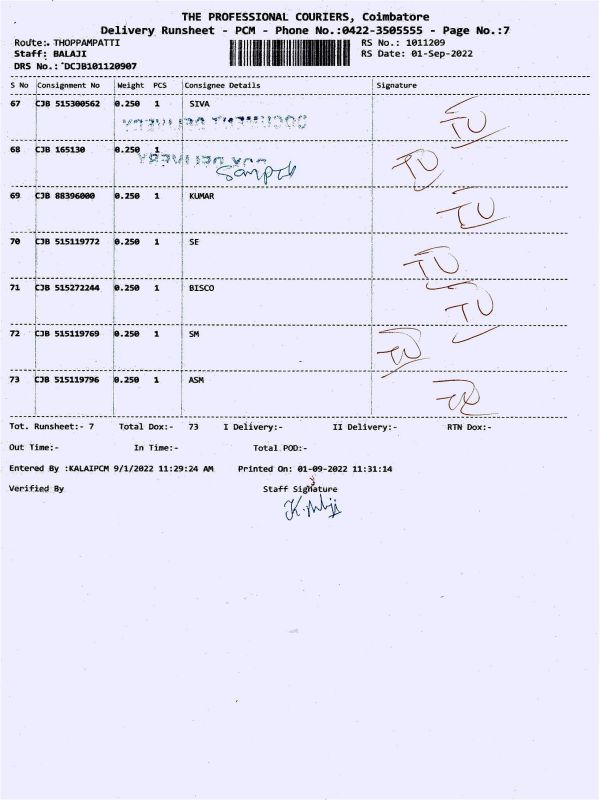 THE PROFESSIONAL COURIERS, Coimbatore
Delivery Runsheet - PCM - Phone No.:0422-3505555 - Page No.:7
Route:. THOPPAMPATTI RS No.: 1011209
Staff: BALAJI RS Date: 01-Sep-2022
DRS No.: DCJB101120907
S No Consignment No Weight PCS Consignee Details Signature
67 CJB 515300562 0.250 1 SIVA
68 CJB 165130 0.250 1
69 CJB 88396000 0.250 1 KUMAR
70 CJB 515119772 0.250 1 SE
71 CJB 515272244 0.250 1 BISCO
72 CJB 515119769 0.250 1 SM
73 CJB 515119796 0.250 1 ASM
Tot. Runsheet:- 7 Total Dox:- 73 I Delivery:- II Delivery:- RTN Dox:-
Out Time:- In Time:- Total POD:-
Entered By :KALAIPCM 9/1/2022 11:29:24 AM Printed On: 01-09-2022 11:31:14
Verified By Staff Signature